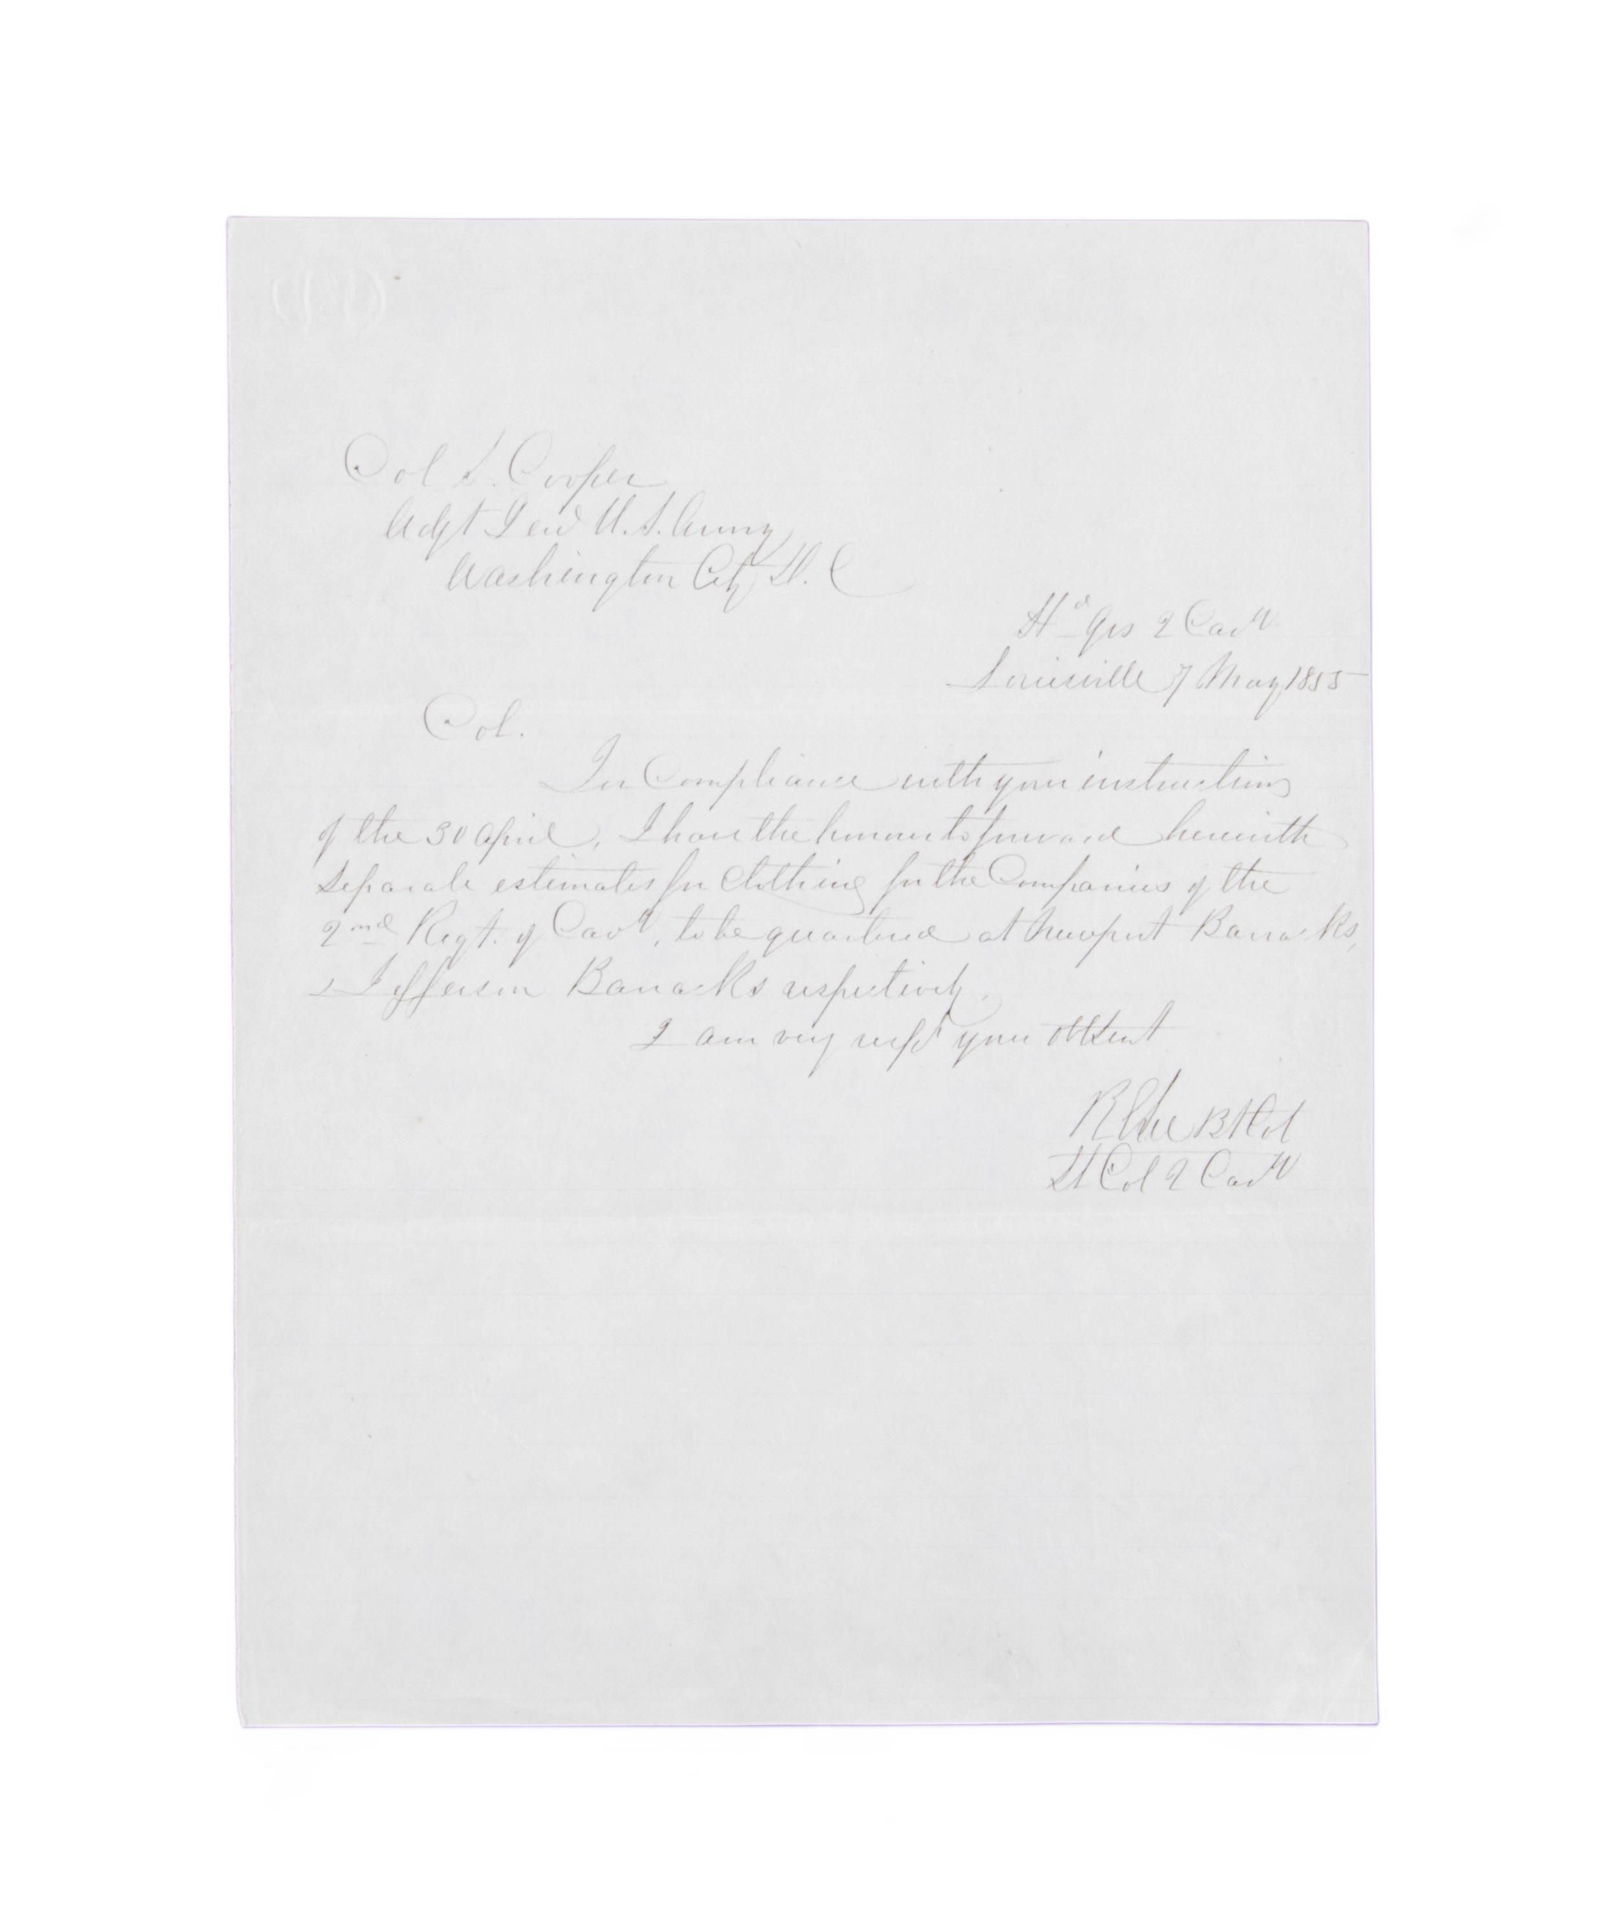 Col S. Cooper
Adjt Genl U.S. Army
Washington City D. C
Hd Qrs 2 Cavy
Louisville 7 May 1855
Col.
In Compliance with your instructions
of the 30 April, I have the honour to forward herewith
separate estimates for Clothing for the Companies of the
2nd Regt. of Cavy, to be quartered at Newport Barracks,
& Jefferson Barracks respectively.
I am very respy your obt Servt
R E Lee Bt Col
Lt Col 2 Cavy